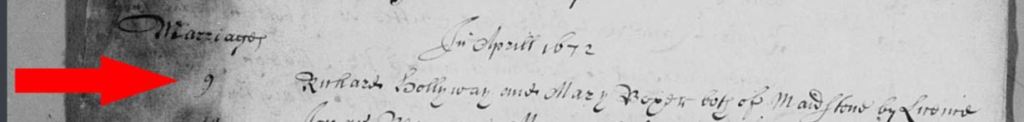 Marriages
In Aprill 1672
9 Richard Hollyway and Mary Roper both of Maidstone by Licence